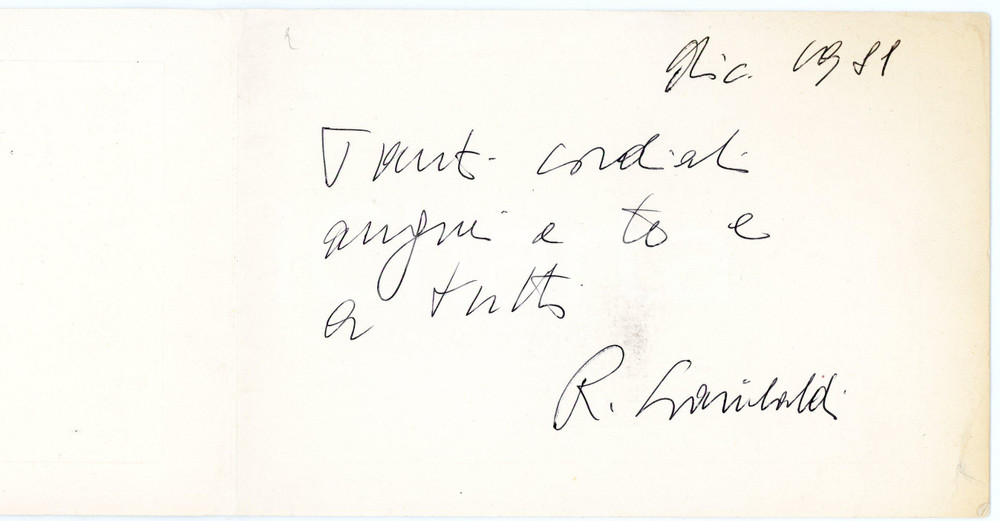 Dic. 1981
Tanti cordiali
auguri a te e
a tutti
R. Garibaldi